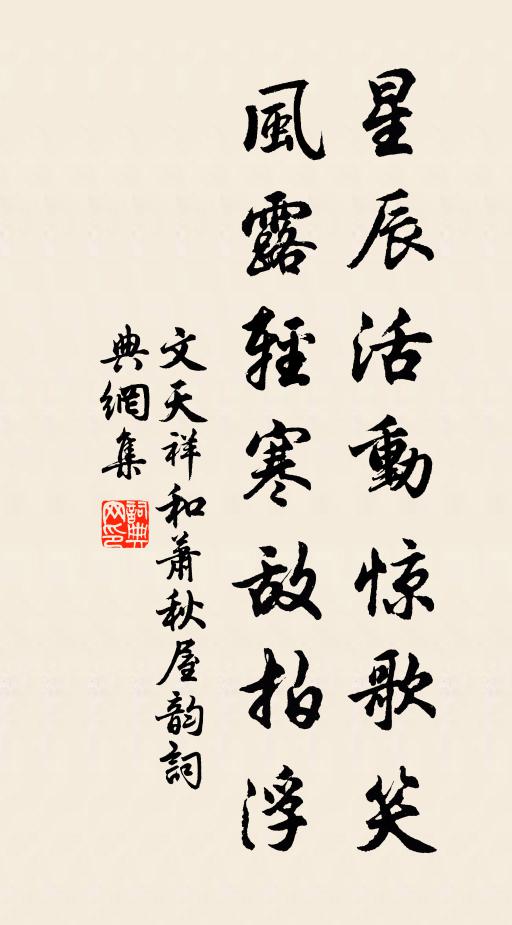 星辰活動惊歌笑
風露輕寒敌拍浮
文天祥和蕭秋屋韵詞
典網集
詞典
网印